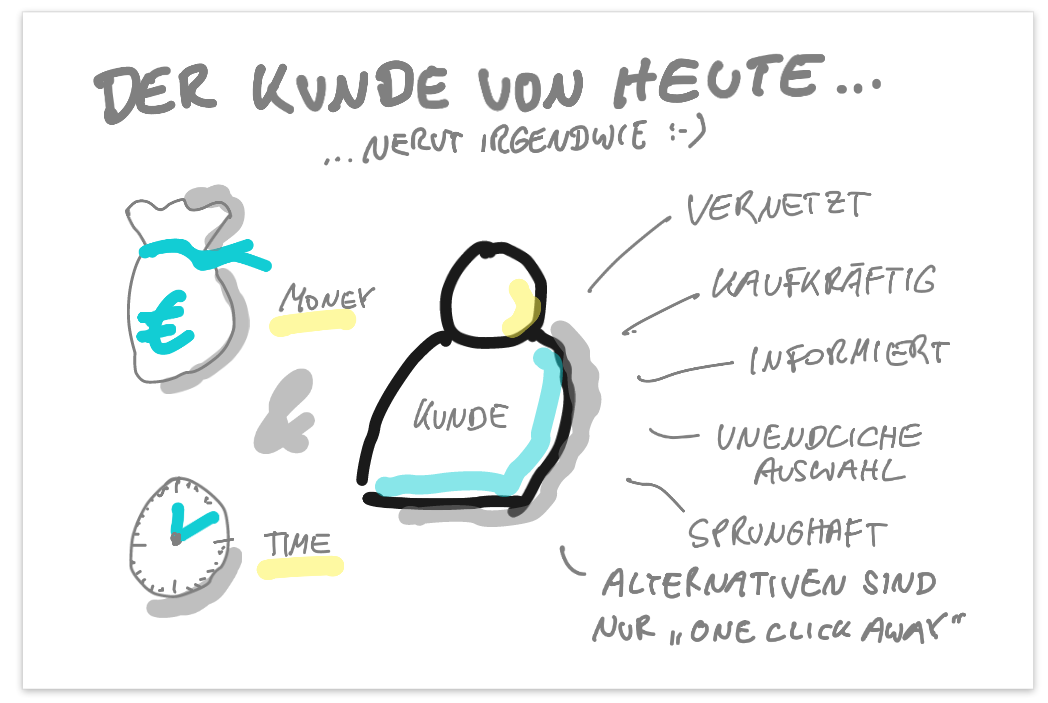 DER KUNDE VON HEUTE...
...NERVT IRGENDWIE :-)
€
MONEY
&
TIME
KUNDE
VERNETZT
KAUFKRÄFTIG
INFORMIERT
UNENDLICHE
AUSWAHL
SPRUNGHAFT
ALTERNATIVEN SIND
NUR „ONE CLICK AWAY“